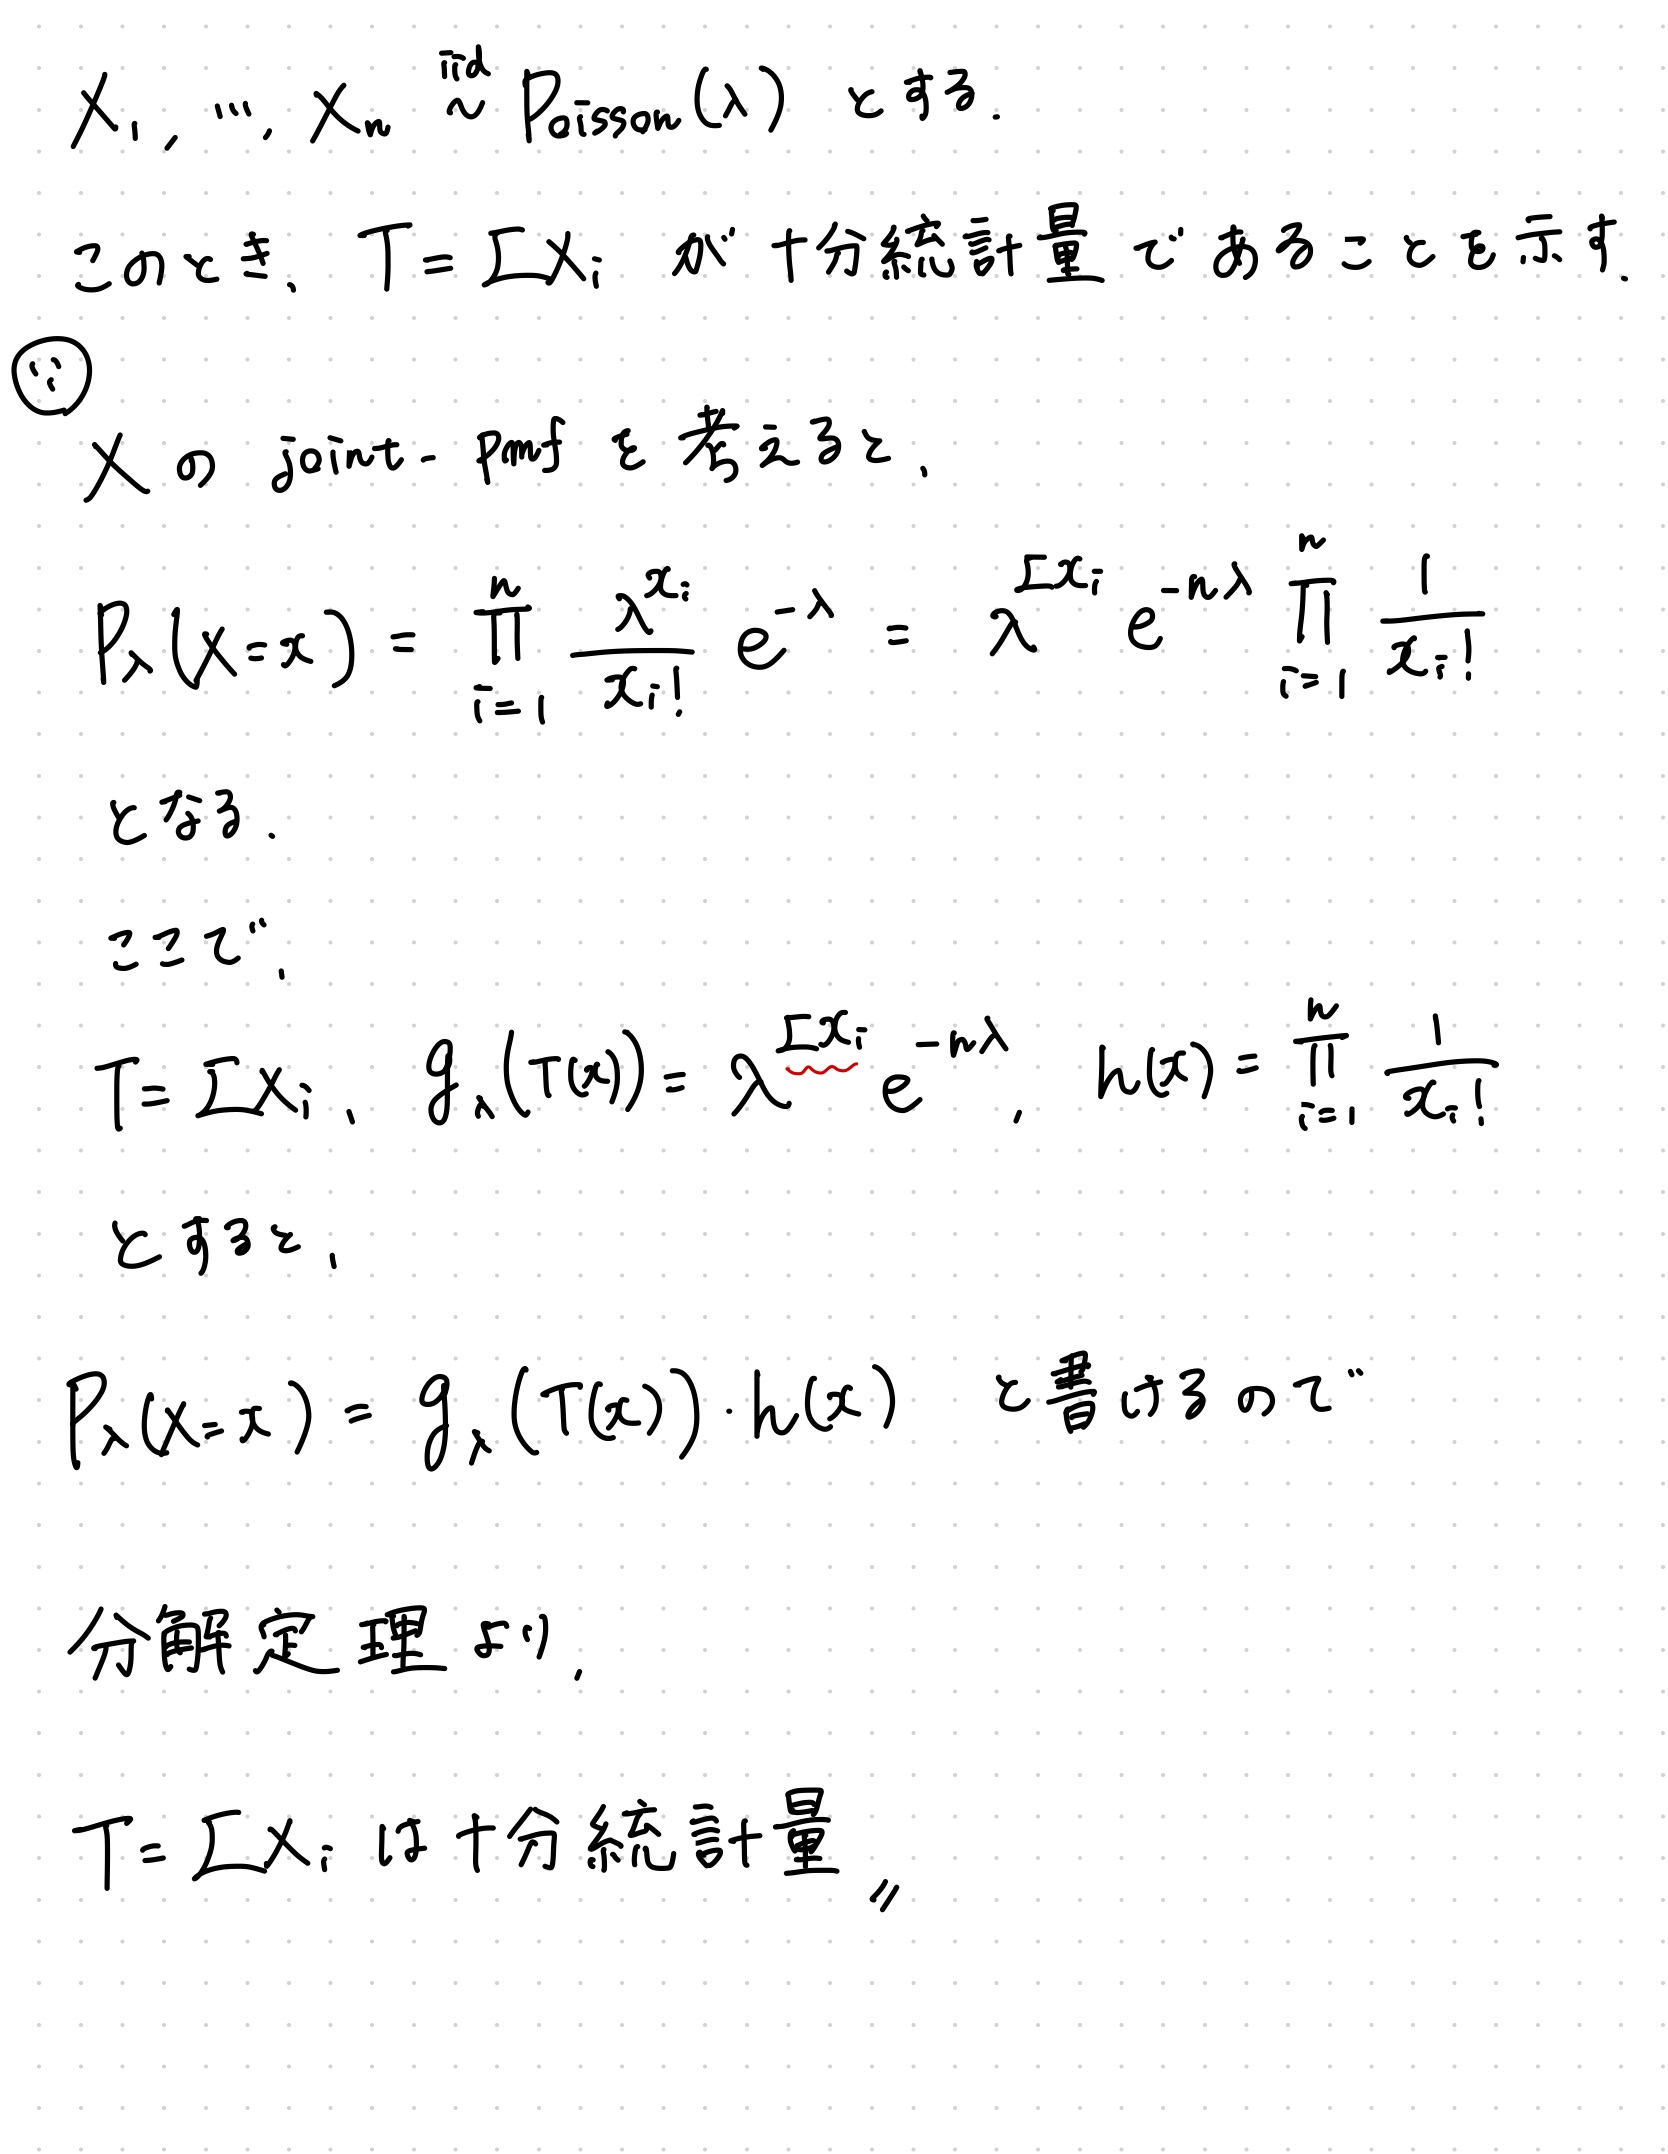 X₁, …, Xₙ iid ~ Poisson(λ) とする.
このとき、T = ΣXᵢ が十分統計量であることを示す.
∵
X の joint-pmf を考えると、
P_λ(X=x) = ∏_{i=1}^{n} λ^{xᵢ}/xᵢ! e^{-λ} = λ^{Σxᵢ} e^{-nλ} ∏_{i=1}^{n} 1/xᵢ!
となる.
ここで、
T = ΣXᵢ、 g_λ(T(x)) = λ^{Σxᵢ} e^{-nλ}, h(x) = ∏_{i=1}^{n} 1/xᵢ!
とすると、
P_λ(X=x) = g_λ(T(x))・h(x) と書けるので
分解定理より,
T = ΣXᵢ は十分統計量 〃